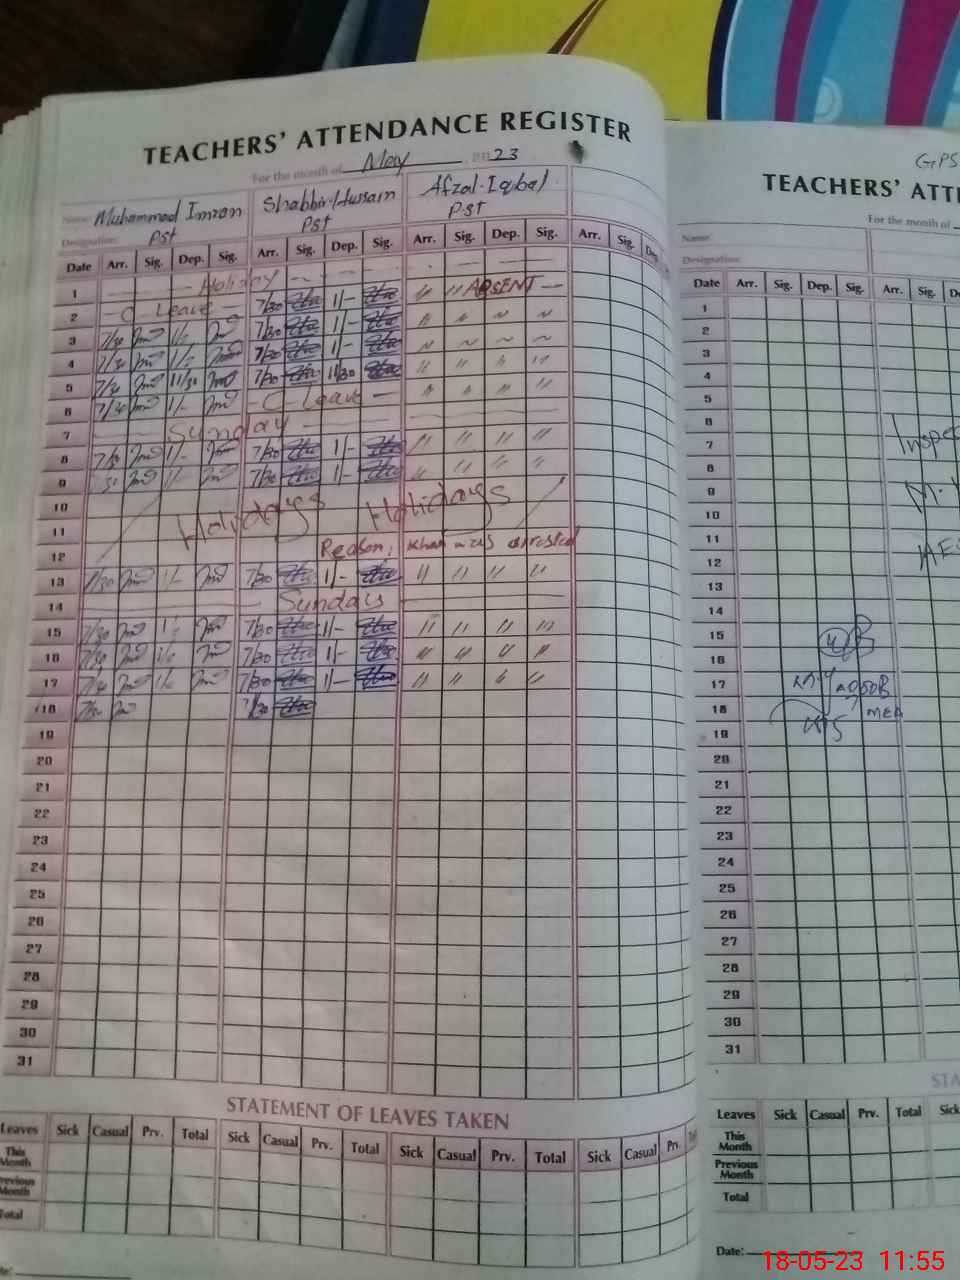 TEACHERS' ATTENDANCE REGISTER
For the month of May 2023
Name: Muhammad Imran Shabbir Hussain Afzal Iqbal
Designation: PST PST PST
Date Arr. Sig. Dep. Sig. Arr. Sig. Dep. Sig. Arr. Sig. Dep. Sig. Arr. Sig. Dep.
1 Holiday
2 C Leave 7/30 1/- 〃 〃 ABSENT
3 7/30 1/- 7/30 1/- 〃 〃 ~ ~
4 7/30 1/- 7/30 1/- ~ ~ ~ ~
5 7/30 11/30 7/30 11/30 〃 〃 〃 〃
6 7/30 1/- C Leave 〃 〃 〃 〃
7 Sunday
8 7/30 1/- 7/30 1/- 〃 〃 〃 〃
9 30 1/- 7/30 1/- 〃 〃 〃 〃
10
11 Holidays Holidays
12 Reason, Khan was arrested
13 7/30 1/- 7/30 1/- 〃 〃 〃 〃
14 Sunday
15 7/30 1/- 7/30 1/- 〃 〃 〃 〃
16 7/30 1/- 7/30 1/- 〃 〃 〃 〃
17 7/30 1/- 7/30 1/- 〃 〃 〃 〃
18 7/30 7/30
19
20
21
22
23
24
25
26
27
28
29
30
31
STATEMENT OF LEAVES TAKEN
Leaves Sick Casual Prv. Total Sick Casual Prv. Total Sick Casual Prv. Total Sick Casual Prv.
This Month
Previous Month
Total
GPS
TEACHERS' ATTE
For the month of
Name:
Designation:
Date Arr. Sig. Dep. Sig. Arr. Sig. De
1
2
3
4
5
6
7 Inspec
8
9
10
11
12
13
14
15
16
17
18 MEA
19
20
21
22
23
24
25
26
27
28
29
30
31
STA
Leaves Sick Casual Prv. Total Sick
This Month
Previous Month
Total
Date:
18-05-23 11:55